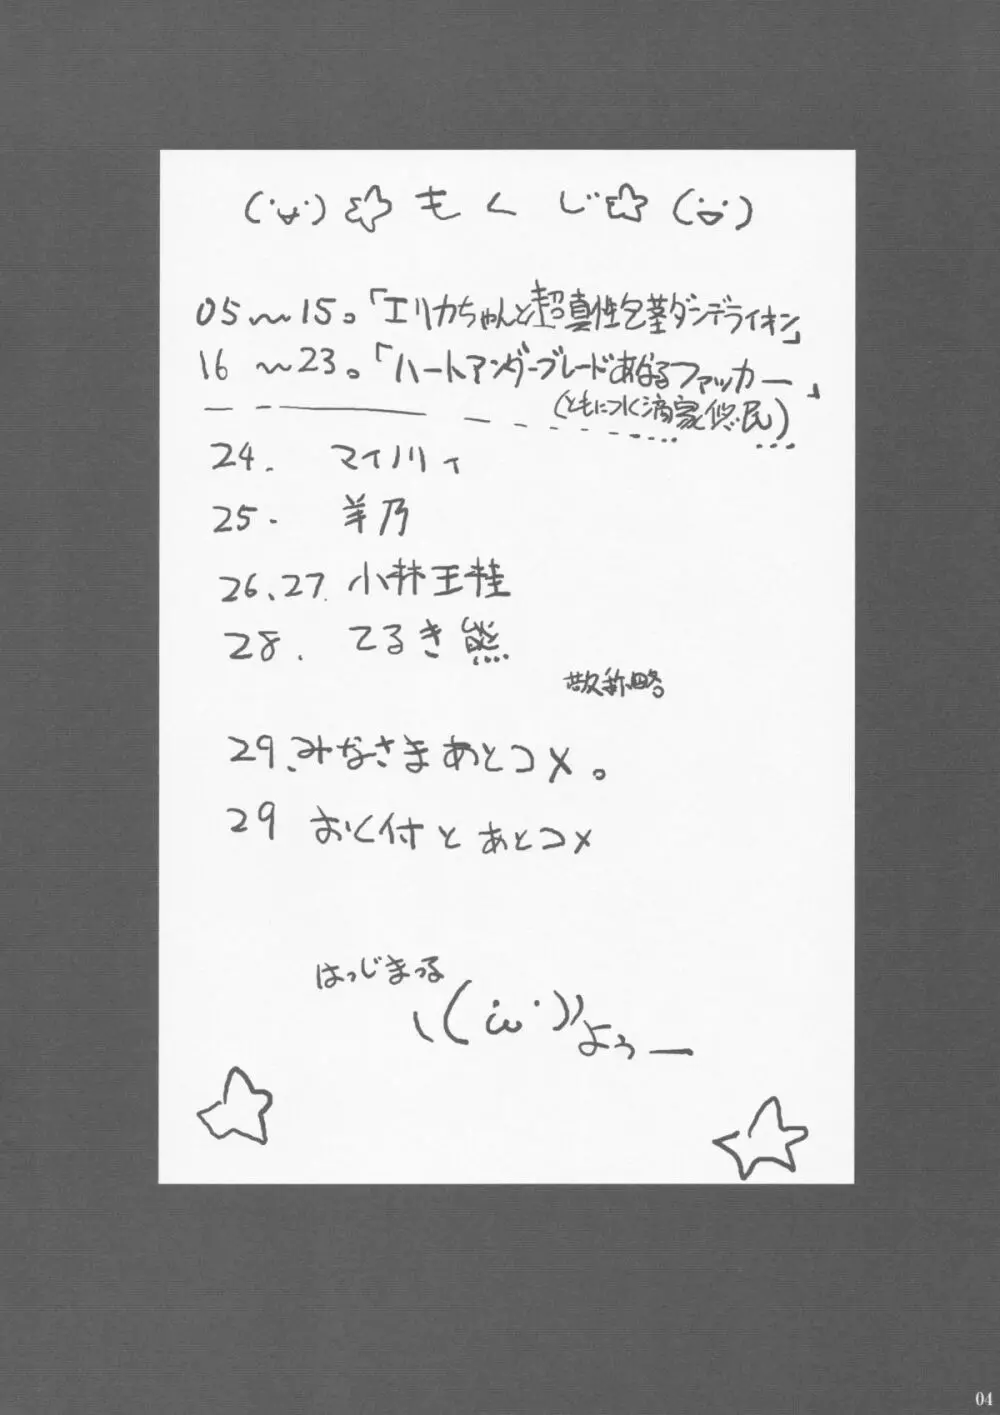 ('v')☆もくじ☆('▽')
05～15。「エリカちゃんと超真性包茎ダンデライオン」
16～23。「ハートアンダーブレードあなるファッカー」
(ともに水滴家悠民)
24. マイノリィ
25. 羊乃
26、27. 小林王桂
28. てるき熊
敬称略
29、みなさまあとコメ。
29 おく付とあとコメ
はっじまっる
ヽ('ω'))よぅー
04